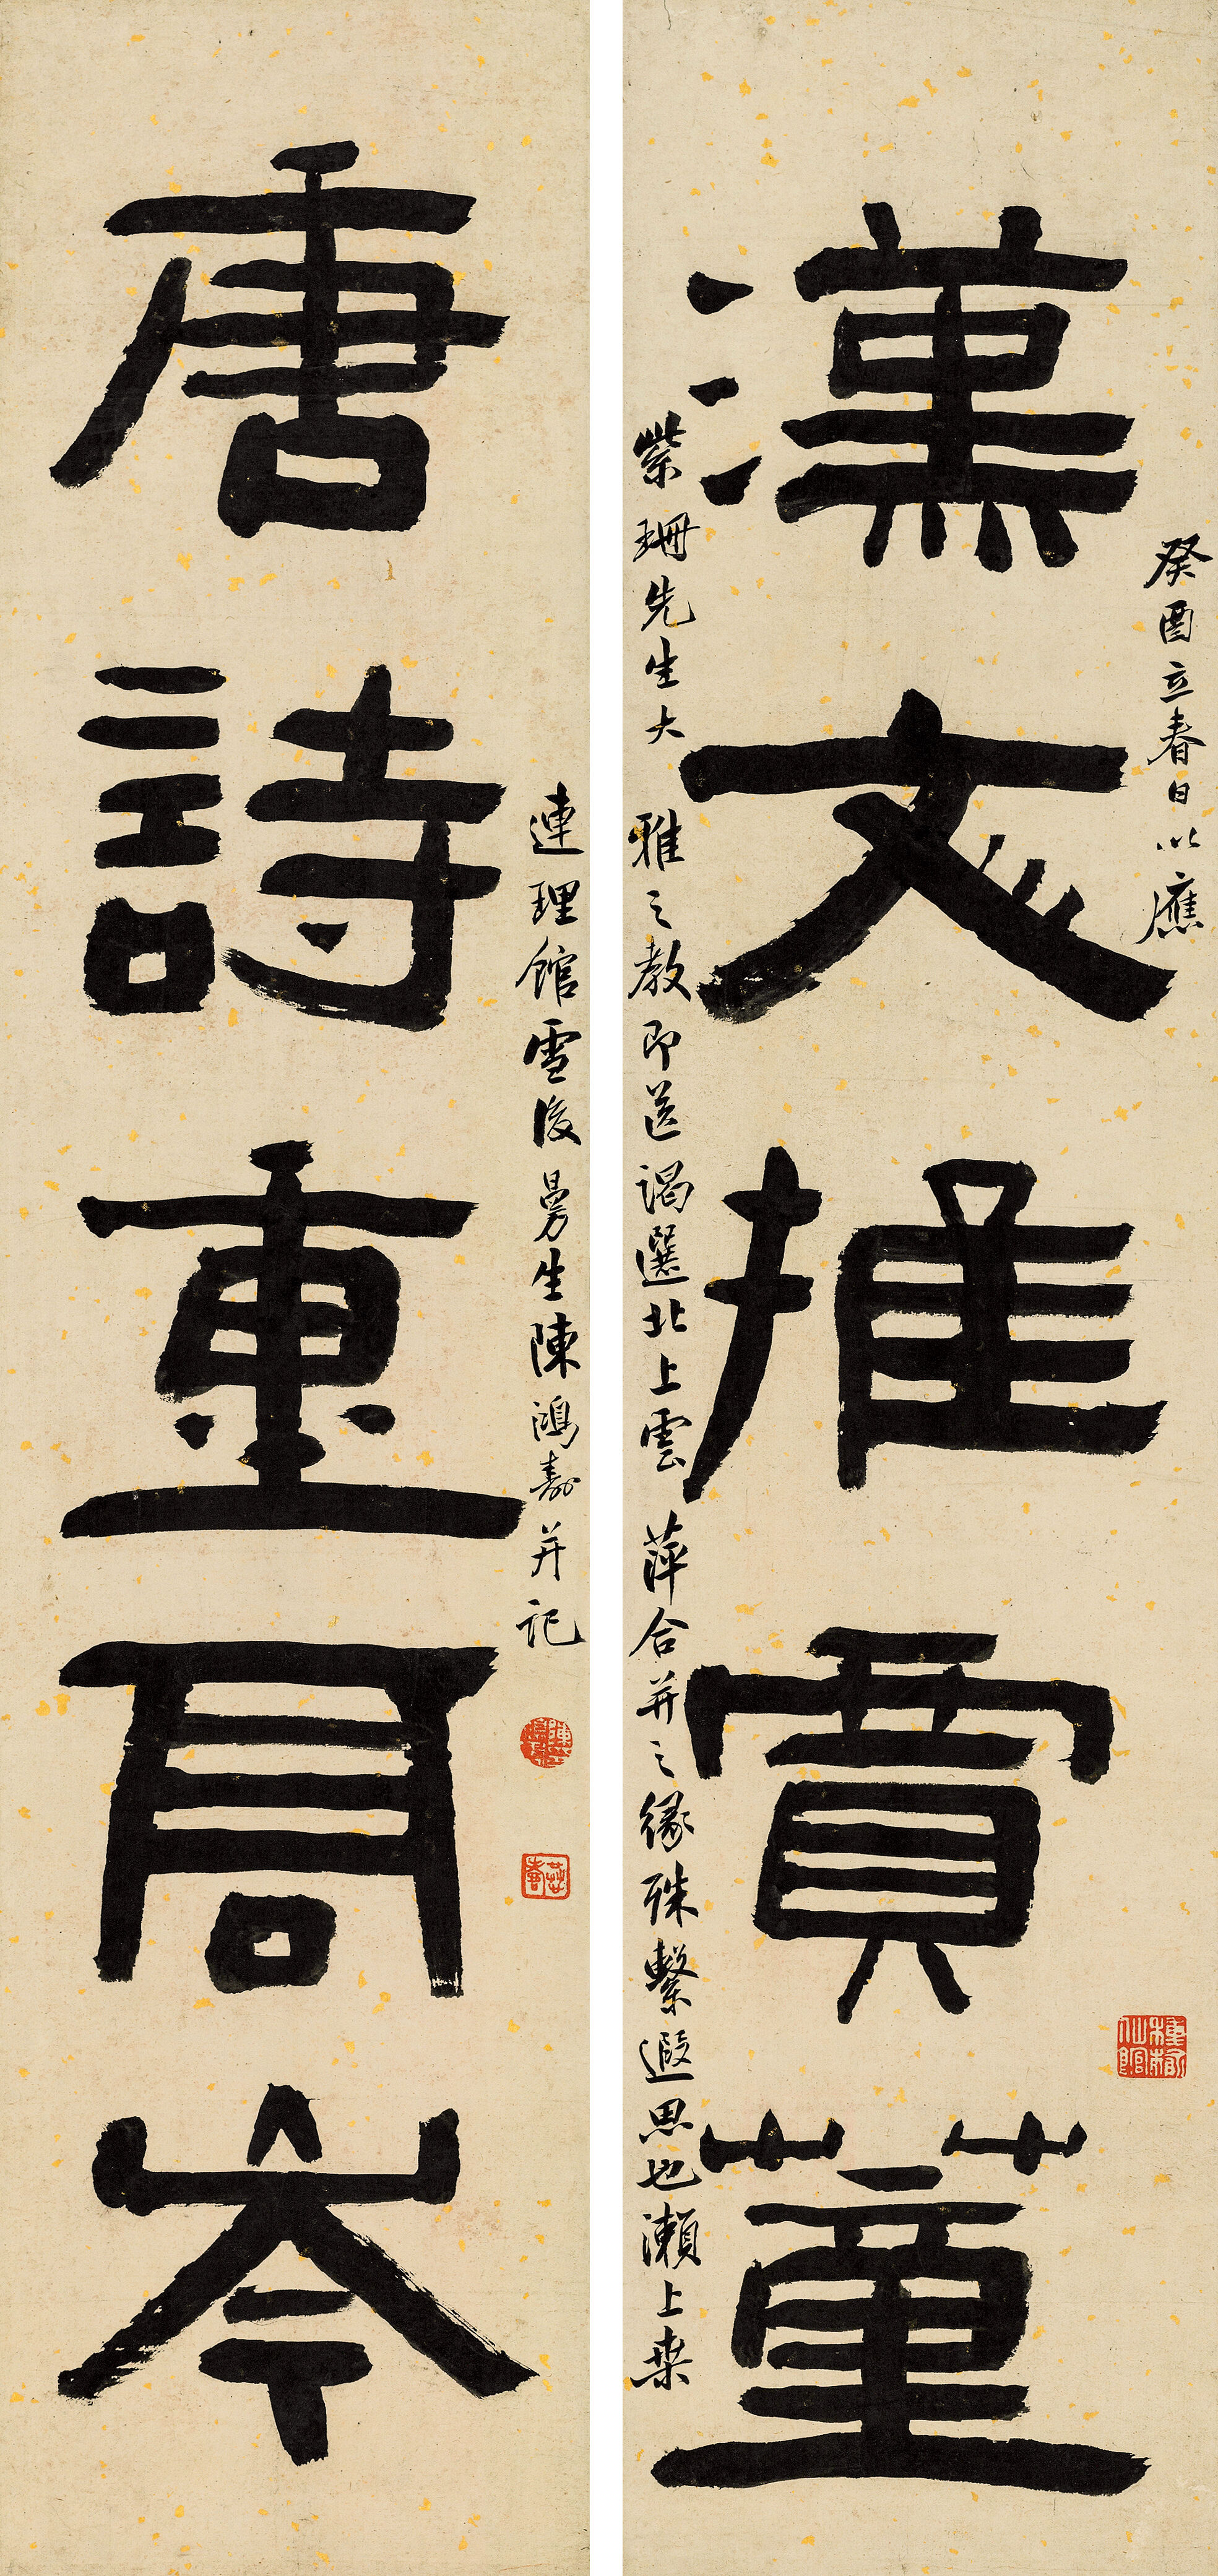 漢文推賈董
癸酉立春日以應
紫珊先生大雅之教即送謁選北上雲萍合并之緣殊繫遐思也瀨上桒
種榆仙館
唐詩重高岑
連理館雪後曼生陳鴻壽并記